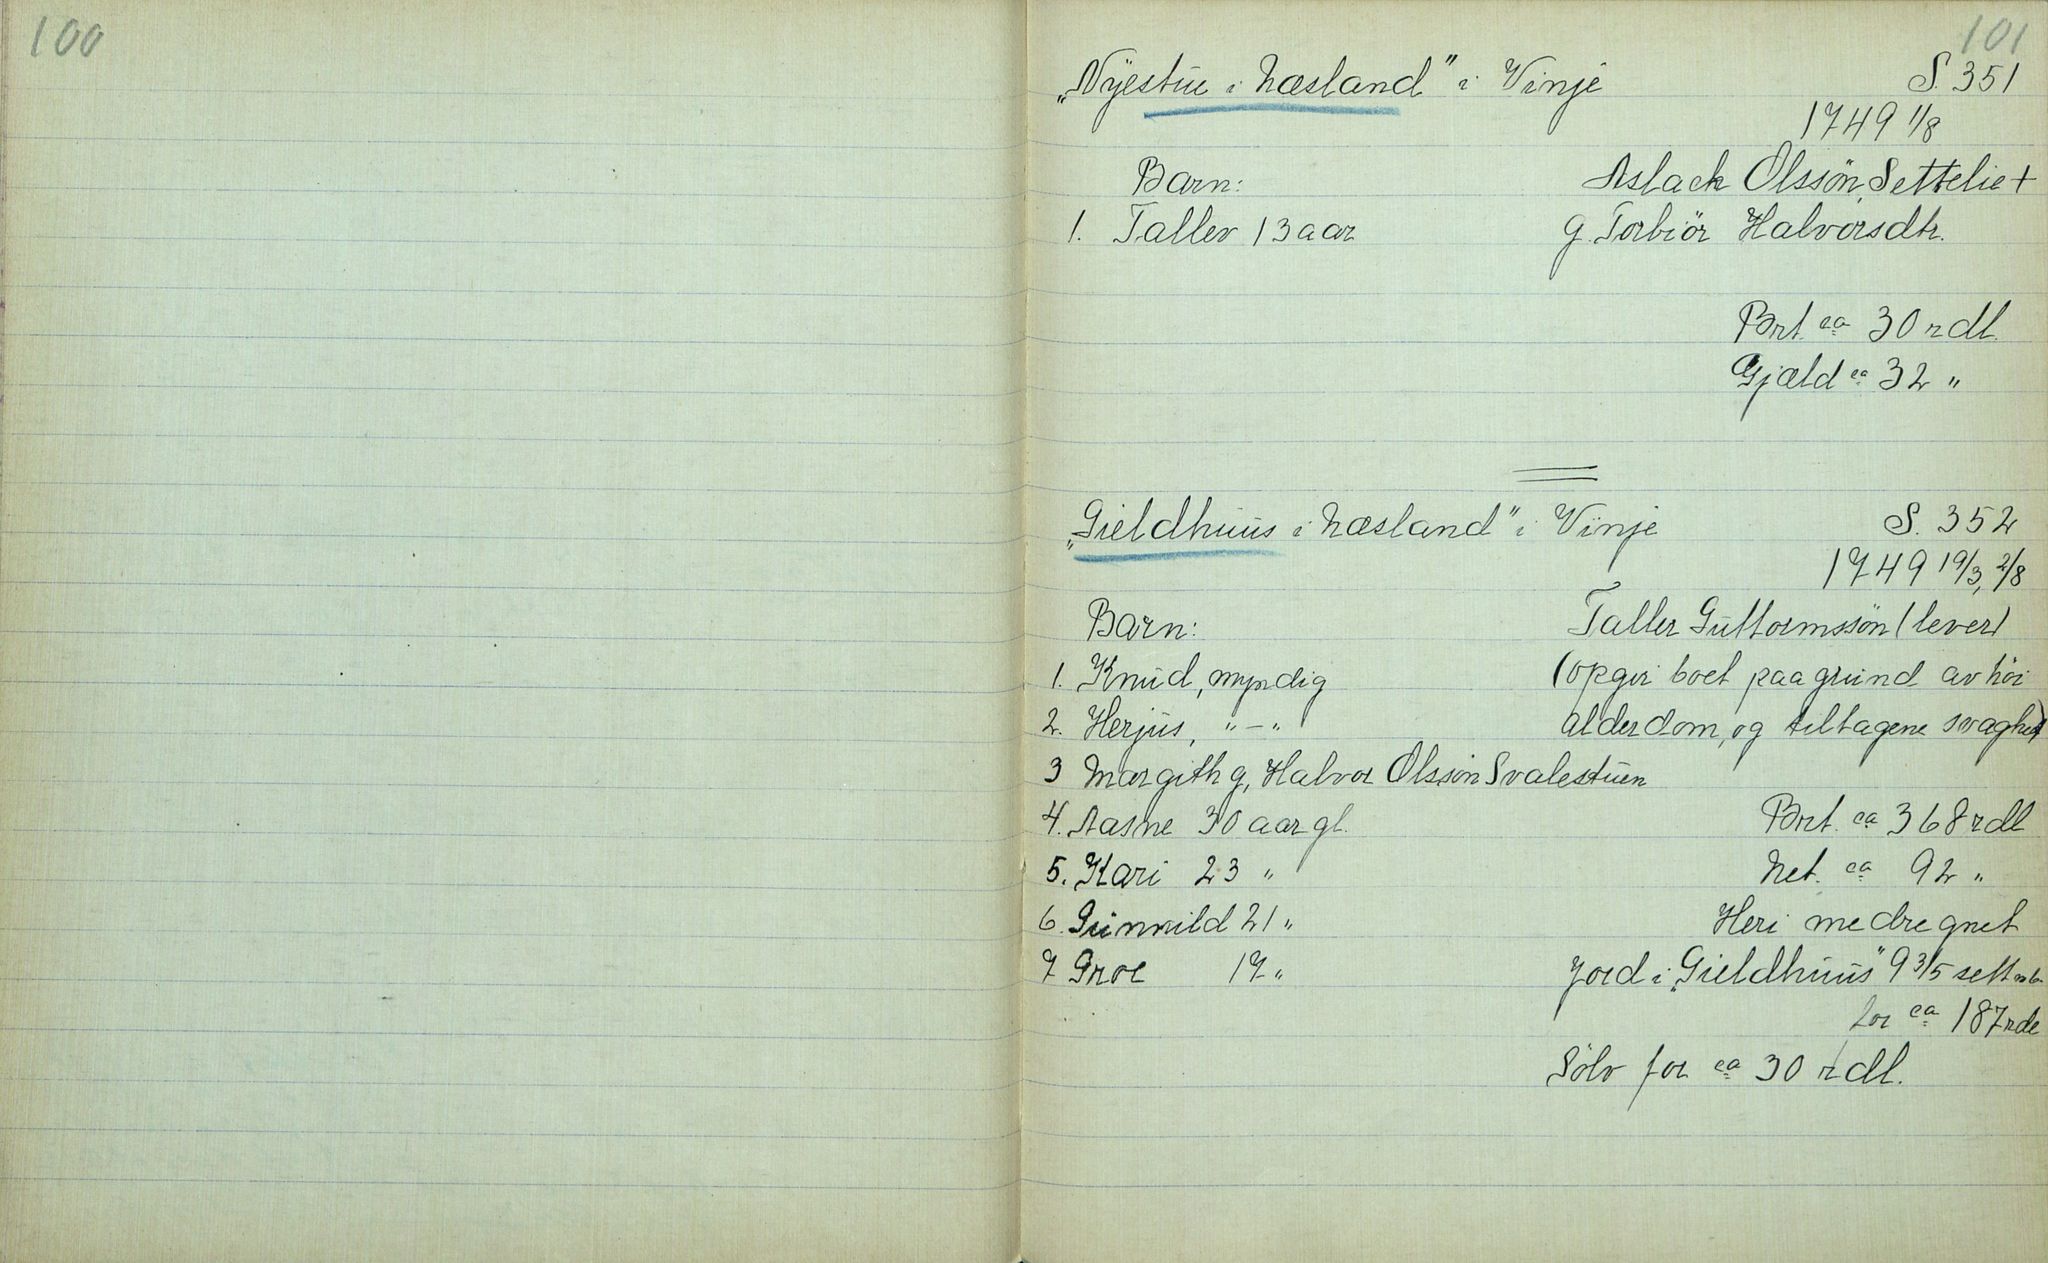 100
101
„Nÿestue i Næsland" i Vinje S. 351
1749 11/8
Barn: Aslack Olssön Settelie +
1. Tallev 13 aar g. Torbiör Halvorsdtr.
Brt. ca 30 rdl.
Gjæld ca 32 "
„Gieldhuus i Næsland" i Vinje S. 352
1749 19/3, 2/8
Barn: Tallev Guttormssön (lever)
1. Knud, myndig (opgir boet paa grund av höi
2. Herjus, "—" alderdom, og tiltagene svaghet)
3 Margith g, Halvor Olssön Svalestuen
4. Aasne 30 aar gl. Brt. ca 368 rdl
5. Kari 23 " Net. ca 92 "
6. Gunnild 21 " Heri medregnet
7 Groe 17 " Jord i „Gieldhuus" 9 3/5 sett
for ca 187 rdl
Sölv for ca 30 rdl.